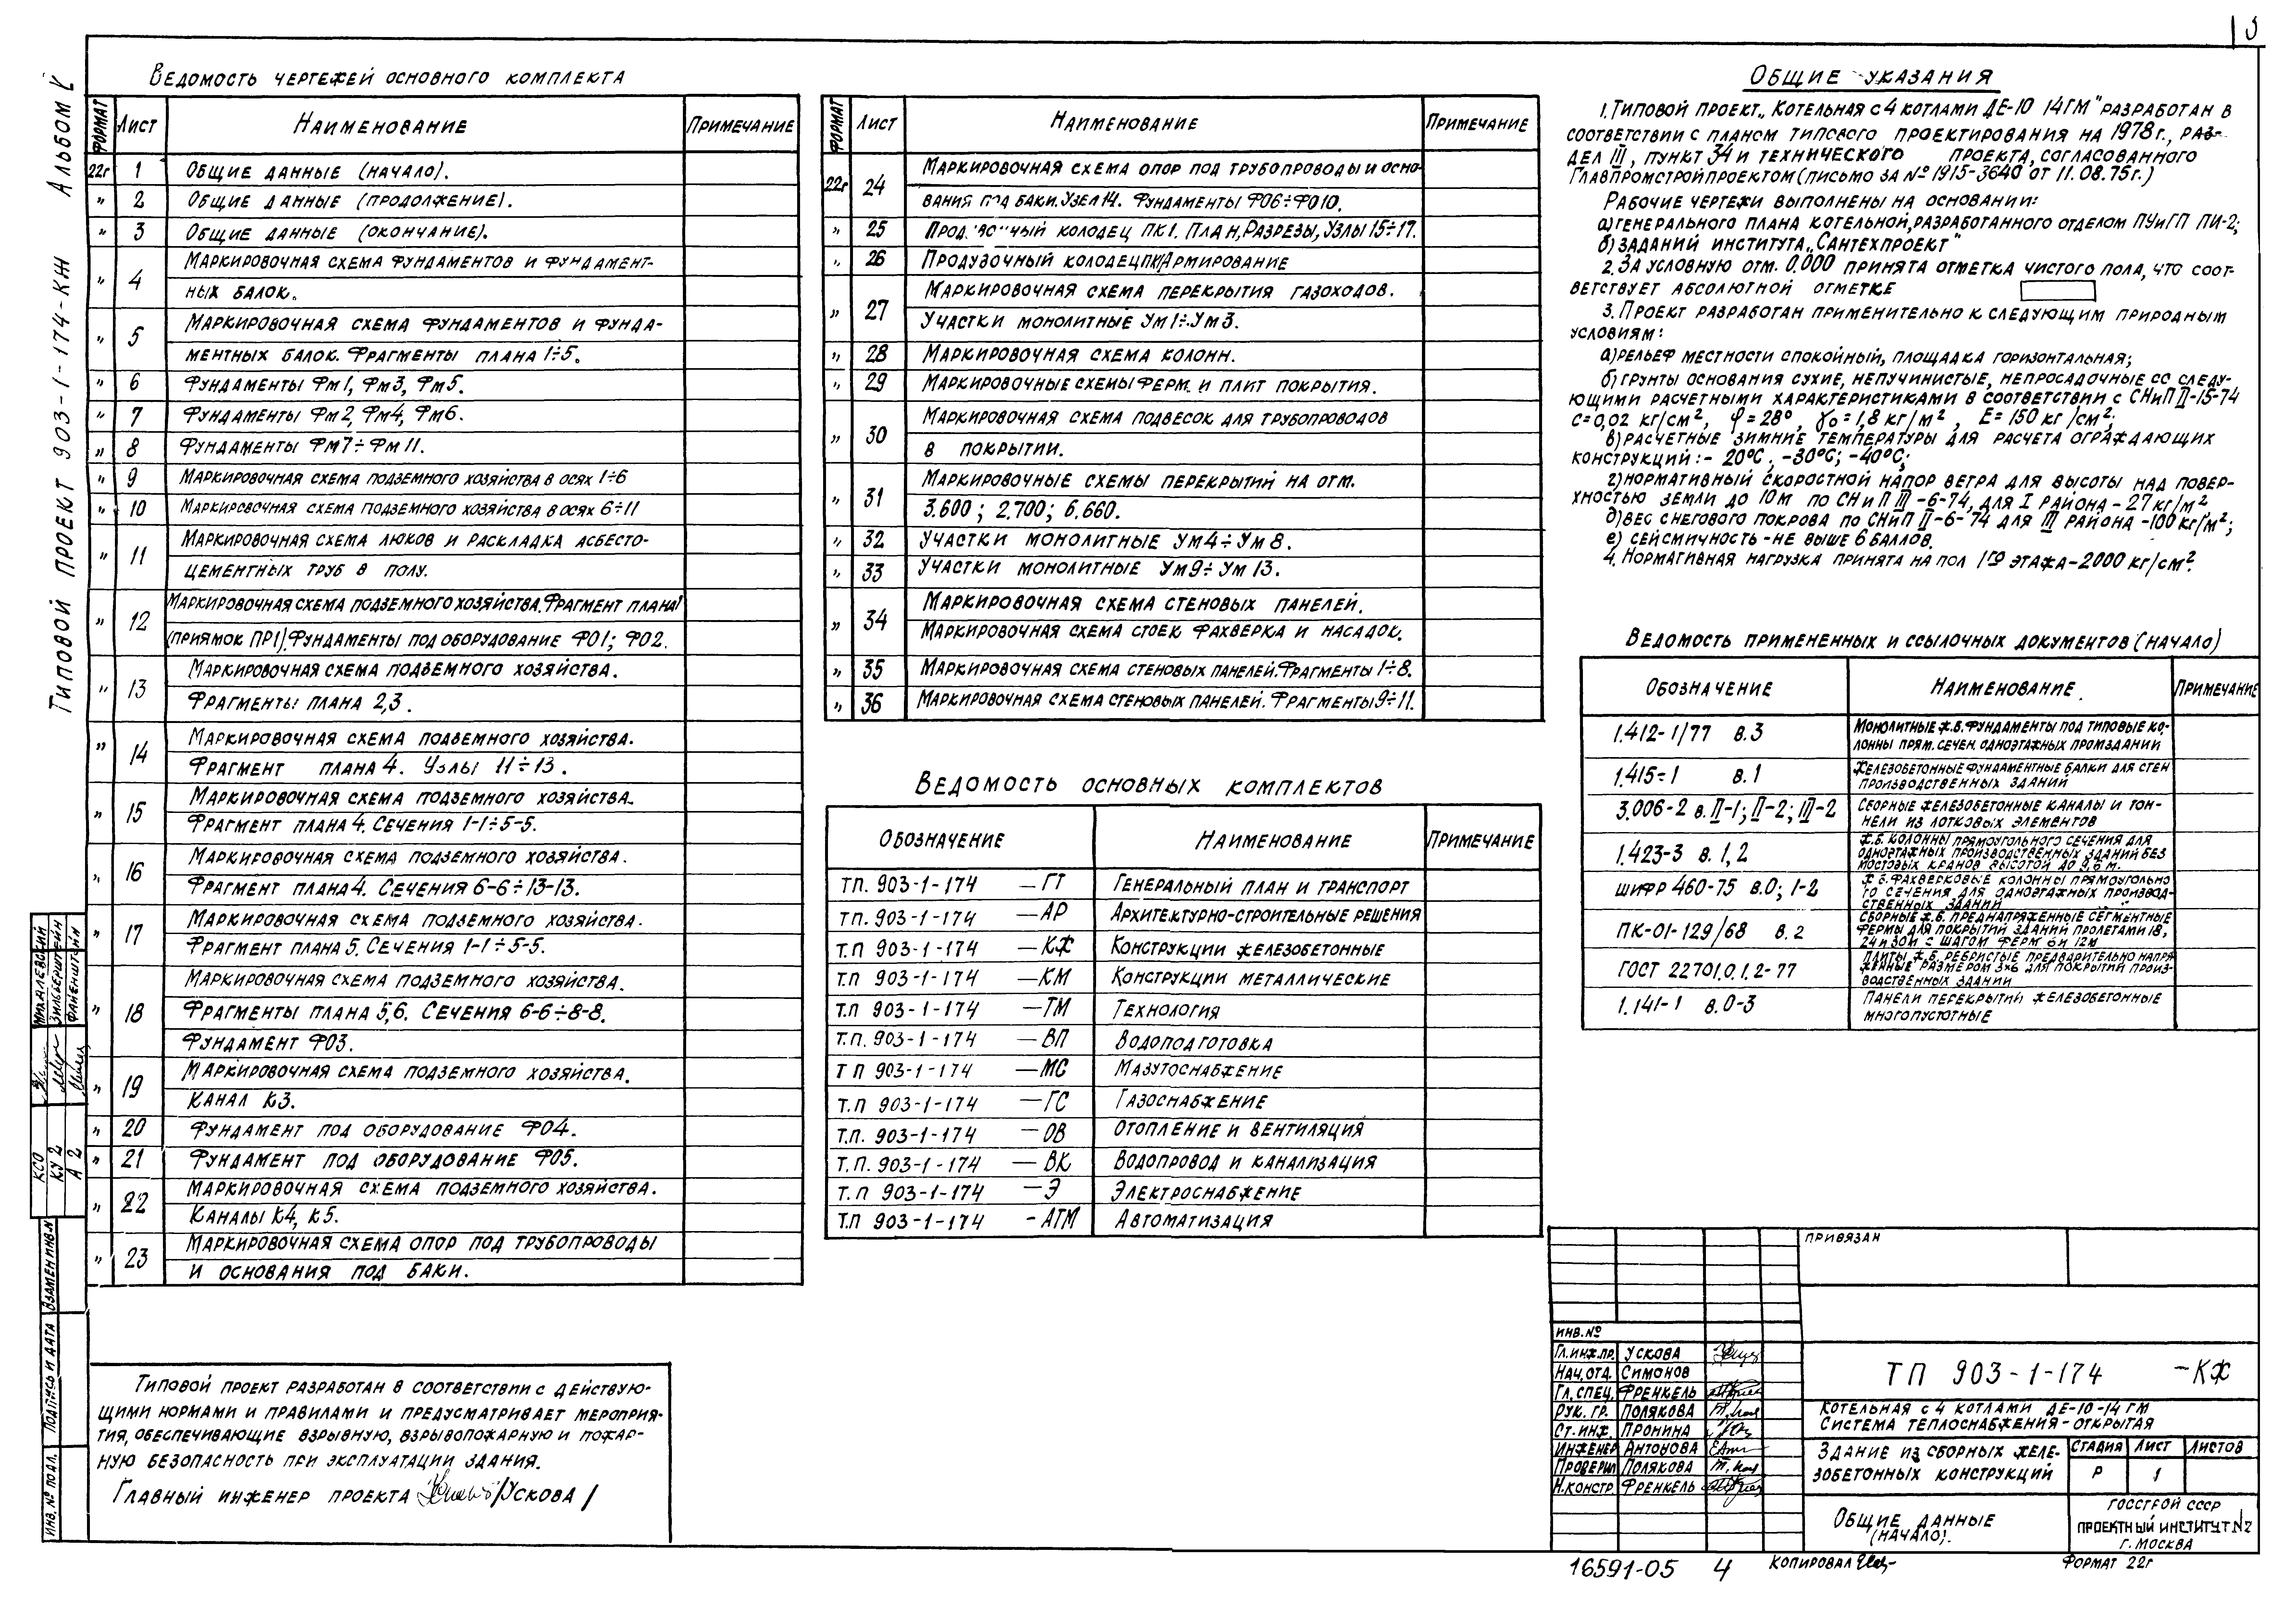 3
Типовой проект 903-1-174-КЖ Альбом V
Ведомость чертежей основного комплекта
Формат Лист Наименование Примечание
22г 1 Общие данные (начало).
" 2 Общие данные (продолжение).
" 3 Общие данные (окончание).
" 4 Маркировочная схема фундаментов и фундамент-
ных балок.
" 5 Маркировочная схема фундаментов и фунда-
ментных балок. Фрагменты плана 1÷5.
" 6 Фундаменты Фм1, Фм3, Фм5.
" 7 Фундаменты Фм2, Фм4, Фм6.
" 8 Фундаменты Фм7÷Фм11.
" 9 Маркировочная схема подземного хозяйства в осях 1÷6
" 10 Маркировочная схема подземного хозяйства в осях 6÷11
" 11 Маркировочная схема люков и раскладка асбесто-
цементных труб в полу.
" 12 Маркировочная схема подземного хозяйства. Фрагмент плана 1
(приямок ПР1). Фундаменты под оборудование ФО1; ФО2.
" 13 Маркировочная схема подземного хозяйства.
Фрагменты плана 2,3.
" 14 Маркировочная схема подземного хозяйства.
Фрагмент плана 4. Узлы 11÷13.
" 15 Маркировочная схема подземного хозяйства.
Фрагмент плана 4. Сечения 1-1÷5-5.
" 16 Маркировочная схема подземного хозяйства.
Фрагмент плана 4. Сечения 6-6÷13-13.
" 17 Маркировочная схема подземного хозяйства.
Фрагмент плана 5. Сечения 1-1÷5-5.
" 18 Маркировочная схема подземного хозяйства.
Фрагменты плана 5,6. Сечения 6-6÷8-8.
Фундамент ФО3.
" 19 Маркировочная схема подземного хозяйства.
Канал К3.
" 20 Фундамент под оборудование ФО4.
" 21 Фундамент под оборудование ФО5.
" 22 Маркировочная схема подземного хозяйства.
Каналы К4, К5.
" 23 Маркировочная схема опор под трубопроводы
и основания под баки.
Типовой проект разработан в соответствии с действую-
щими нормами и правилами и предусматривает мероприя-
тия, обеспечивающие взрывную, взрывопожарную и пожар-
ную безопасность при эксплуатации здания.
Главный инженер проекта /Ускова/
Формат Лист Наименование Примечание
22г 24 Маркировочная схема опор под трубопроводы и осно-
вания под баки. Узел 14. Фундаменты ФО6÷ФО10.
" 25 колодец ПК1. План, Разрезы, Узлы 15÷17.
" 26 Продувочный колодец ПК1 Армирование
" 27 Маркировочная схема перекрытия газоходов.
Участки монолитные Ум1÷Ум3.
" 28 Маркировочная схема колонн.
" 29 Маркировочные схемы ферм. и плит покрытия.
" 30 Маркировочная схема подвесок для трубопроводов
в покрытии.
" 31 Маркировочные схемы перекрытий на отм.
3.600; 2.700; 6.660.
" 32 Участки монолитные Ум4÷Ум8.
" 33 Участки монолитные Ум9÷Ум13.
" 34 Маркировочная схема стеновых панелей.
Маркировочная схема стоек фахверка и насадок.
" 35 Маркировочная схема стеновых панелей. Фрагменты 1÷8.
" 36 Маркировочная схема стеновых панелей. Фрагменты 9÷11.
Ведомость основных комплектов
Обозначение Наименование Примечание
ТП. 903-1-174 —ГТ Генеральный план и транспорт
ТП. 903-1-174 —АР Архитектурно-строительные решения
Т.П 903-1-174 —КЖ Конструкции железобетонные
ТП 903-1-174 —КМ Конструкции металлические
ТП 903-1-174 —ТМ Технология
Т.П. 903-1-174 —ВП Водоподготовка
ТП 903-1-174 —МС Мазутоснабжение
Т.П 903-1-174 —ГС Газоснабжение
Т.П. 903-1-174 —ОВ Отопление и вентиляция
Т.П. 903-1-174 —ВК Водопровод и канализация
Т.П 903-1-174 —Э Электроснабжение
Т.П 903-1-174 -АТМ Автоматизация
Общие указания
1. Типовой проект „Котельная с 4 котлами ДЕ-10 14ГМ" разработан в
соответствии с планом типового проектирования на 1978г., раз-
дел III, пункт 34 и технического проекта, согласованного
Главпромстройпроектом (письмо за № 1915-3640 от 11.08.75г.)
Рабочие чертежи выполнены на основании:
а) генерального плана котельной, разработанного отделом ПУиГП ПИ-2;
б) заданий института „Сантехпроект"
2. За условную отм. 0.000 принята отметка чистого пола, что соот-
ветствует абсолютной отметке
3. Проект разработан применительно к следующим природным
условиям:
а) рельеф местности спокойный, площадка горизонтальная;
б) грунты основания сухие, непучинистые, непросадочные со следу-
ющими расчетными характеристиками в соответствии с СНиП II-15-74
С=0,02 кг/см², φ=28°, γо=1,8 кг/м², Е=150 кг/см²;
в) расчетные зимние температуры для расчета ограждающих
конструкций: - 20°С; -30°С; -40°С;
г) нормативный скоростной напор ветра для высоты над повер-
хностью земли до 10м по СНиП III-6-74, для I района - 27кг/м²
д) вес снегового покрова по СНиП II-6-74 для III района -100кг/м²;
е) сейсмичность - не выше 6 баллов.
4. Нормативная нагрузка принята на пол 1го этажа-2000 кг/см².
Ведомость примененных и ссылочных документов (начало)
Обозначение Наименование Примечание
1.412-1/77 в.3 Монолитные ж.б. фундаменты под типовые ко-
лонны прям. сечен. одноэтажных промзданий
1.415-1 в.1 Железобетонные фундаментные балки для стен
производственных зданий
3.006-2 в. II-1; II-2; III-2 Сборные железобетонные каналы и тон-
нели из лотковых элементов
1.423-3 в. 1,2 Ж.б. колонны прямоугольного сечения для
одноэтажных производственных зданий без
мостовых кранов высотой до 9,6 м.
шифр 460-75 в.0; 1-2 Ж.б. фахверковые колонны прямоугольно
го сечения для одноэтажных производ-
ственных зданий
ПК-01-129/68 в.2 Сборные ж.б. преднапряженные сегментные
фермы для покрытий зданий пролетами 18,
24 и 30м с шагом ферм 6 и 12м
ГОСТ 22701.0.1.2-77 Плиты ж.б. ребристые предварительно напря
женные размером 3х6 для покрытий произ-
водственных зданий
1.141-1 в.0-3 Панели перекрытий железобетонные
многопустотные
Привязан
Инв.№
Гл.инж.пр. Ускова
Нач.отд. Симонов
Гл.спец. Френкель
Рук.гр. Полякова
Ст.инж. Пронина
Инженер Антонова
Проверил Полякова
Н.констр. Френкель
ТП 903-1-174 -КЖ
Котельная с 4 котлами ДЕ-10-14ГМ
Система теплоснабжения-открытая
Здание из сборных желе-
зобетонных конструкций
Стадия Лист Листов
Р 1
Общие данные
(начало).
Госстрой СССР
Проектный институт №2
г. Москва
16591-05 4 Копировал Формат 22г
КСО Михалевский
КУ 2 Зильберштейн
А 2 Файенштейн
Взамен инв.№
Подпись и дата
Инв.№ подл.